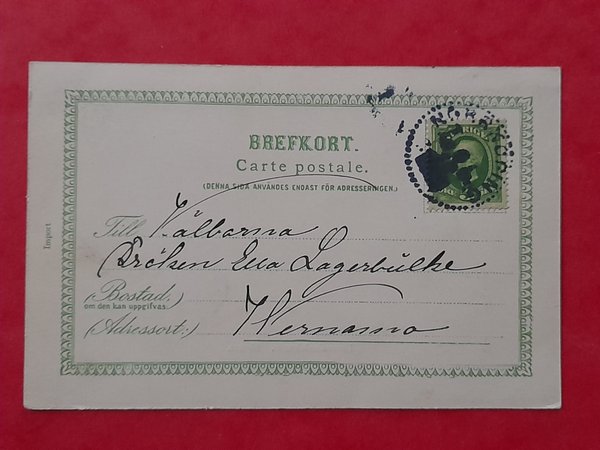 BREFKORT.
Carte postale.
(DENNA SIDA ANVÄNDES ENDAST FÖR ADRESSERINGEN.)
Till Välborna
Fröken Ewa Lagerbülke
(Bostad,
om den kan uppgifvas.
(Adressort:) Wernamo
Import